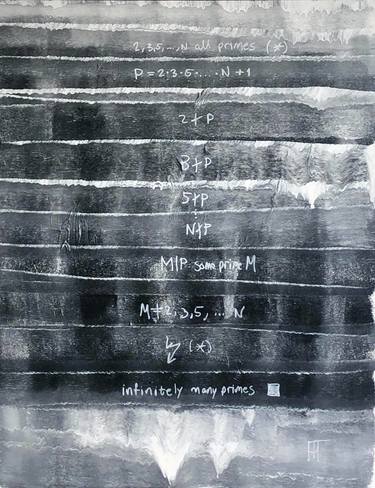 2,3,5,...,N all primes (*)
P = 2·3·5·...·N+1
2∤P
3∤P
5∤P
⋮
N∤P
M|P some prime M
M≠2,3,5,...N
↯ (*)
infinitely many primes □